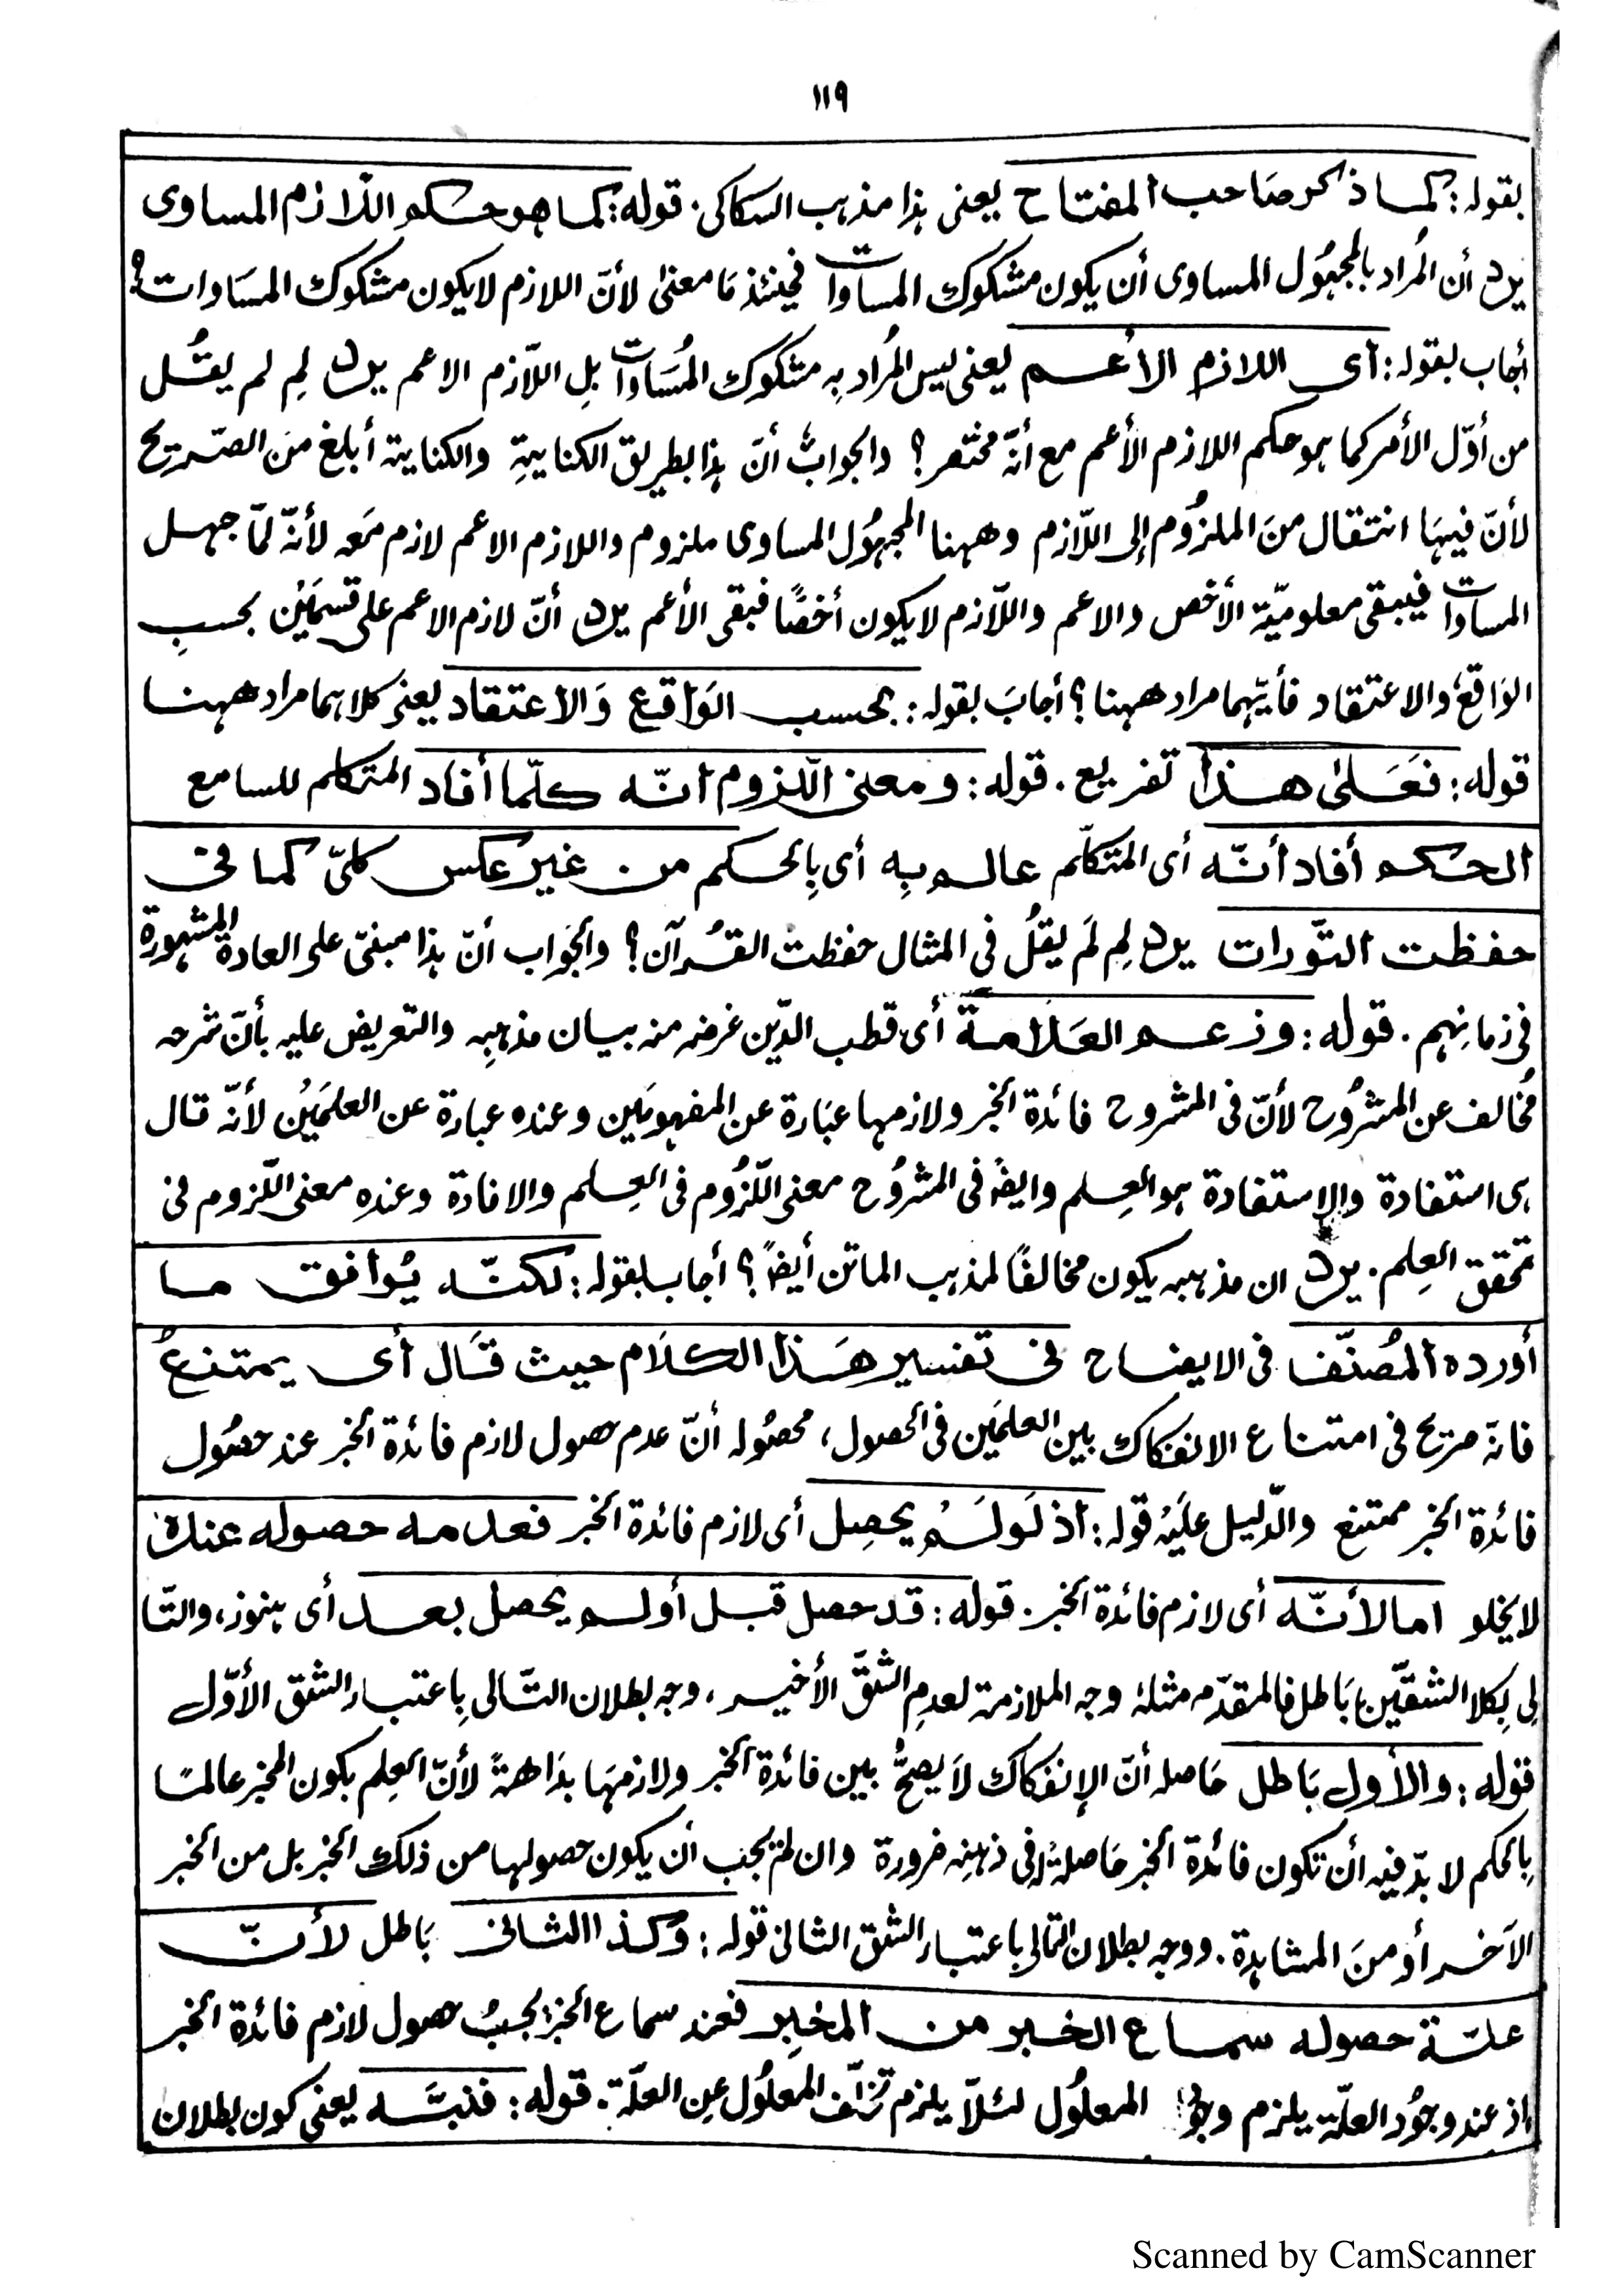 ١١٩
بقوله: كما ذكر صاحب المفتاح يعنى هذا مذهب السكاكى. قوله: كما هو حكم اللازم المساوى
يرد أن المُراد بالمجهُول المساوى أن يكون مشكوك المساوات فحينئذ مَا معنىٰ لأنّ اللازم لا يكون مشكوك المسَاوات؟
أجاب بقوله: أى اللازم الأعم يعنى ليس المُراد بِه مشكوك المُسَاوات بل اللّازم الاعم يرد لِم لم يقُل
من أوّل الأمر كما هو حكم اللازم الأعم مع أنّه مختصر؟ والجوابُ أنّ هذا بطريق الكنايةِ والكناية أبلغ منَ الصّريح
لأنّ فيهَا انتقال منَ الملزُوم إلى اللّازم وههنا المجهُول المساوى ملزوم واللازم الاعم لازم مَعه لأنّه لمّا جهل
المساوات فيبقى معلوميّة الأخص والاعم واللّازم لا يكون أخصًّا فبقى الأعم يرد أنّ لازم الاعم على قسمَيْن بحسبِ
الوَاقعْ والاعتقاد فأيّهما مراد ههنا؟ أجابَ بقوله: بحسب الوَاقع وَالاعتقاد يعنى كلاهما مراد ههنا
قوله: فَعَلىٰ هذا تفريع. قوله: ومعنى اللّزوم انّه كلّما أفاد المتكلم للسامع
الحكم أفاد أنّه أى المتكلّم عالم بِه أى بِالحكم من غير عكس كلىّ كما فى
حفظت التّورات يرد لِم لَم يقُل فى المثال حفظت القُرآن؟ والجَواب أنّ هذا مبنىّ على العادة المشهورة
فى زمانهم. قوله: وزعم العَلامة أى قطب الدّين غرضه منه بيان مذهبِه والتعريض عليه بأنّ شرحه
مُخالف عن المشرُوح لأنّ فى المشروح فائدة الخبر ولازمها عبَارة عن المفهومَين وعنده عبارة عن العلمَيْن لأنّه قال
هى استفادة والاستفادة هو العِلم وايضًا فى المشرُوح معنى اللّزُوم فى العِلم والافادة وعندِه معنى اللّزوم فى
تحقق العِلم. يرد ان مذهبه يكون مخالفًا لمذهب الماتن أيضًا؟ أجاب بقوله: لكنّه يُوافق ما
أورده المُصنّف فى الايضاح فى تفسير هَذا الكلَام حيث قَال أى يمتنعُ
فانّه صريح فى امتناع الانفكاك بين العلمَين فى الحصول، محصُوله أنّ عدم حصول لازم فائدة الخبر عند حصُول
فائدة الخبر ممتنع والدّليل علَيْه قوله: اذ لَولَمْ يحصِل أى لازم فائدة الخبر فعدمه حصوله عنده
لا يخلو اما لأنّه أى لازم فائدة الخبر. قوله: قد حصل قبل أولم يحصل بعد أى هنوز، والتّا
لى بِكلا الشقّين بَاطل فالمقدّم مثلهُ وجه الملازمة لعدمِ الشقّ الأخير، وجه بطلان التّالى بِاعتبار الشق الأوّل
قوله: والأول بَاطل حَاصله أنّ الإنفكاك لاَ يصحُّ بين فائدة الخبر ولازمهَا بدَاهةً لأنّ العِلم بكون المخبر عالمًا
بِالحكم لا بدّ فيه أن تكون فائدة الخبر حَاصلةً فى ذهنِه ضرورة وان لم يجب أن يكون حصولها من ذلك الخبر بل من الخبر
الآخر أو منَ المشاهدة. ووجه بطلان التّالى باعتبار الشق الثانى قوله: وَكذا الثانى بَاطل لأنّ
علّة حصوله سماع الخبر من المخبِر فعند سماع الخبر يجبُ حصول لازم فائدة الخبر
إذ عند وجُود العلّة يلزم وجود المعلُول لئلّا يلزم تخلّف المعلُول عنِ العلّة. قوله: فنبّه يعنى كون بطلان
Scanned by CamScanner